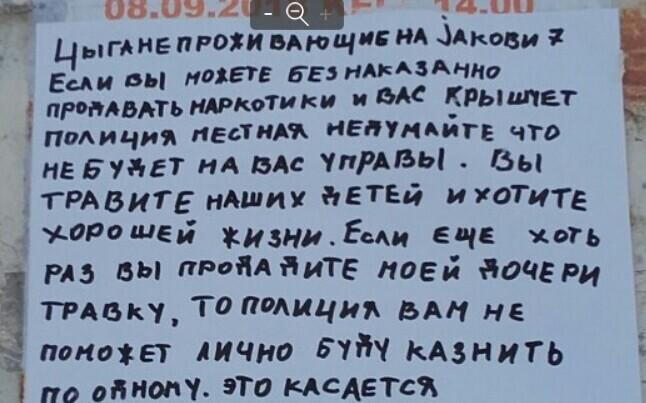 08.09.20 14.00
ЦЫГАНЕ ПРОЖИВАЮЩИЕ НА JАКОВИ 7
ЕСЛИ ВЫ МОЖЕТЕ БЕЗНАКАЗАННО
ПРОДАВАТЬ НАРКОТИКИ И ВАС КРЫШУЕТ
ПОЛИЦИЯ МЕСТНАЯ НЕДУМАЙТЕ ЧТО
НЕ БУДЕТ НА ВАС УПРАВЫ. ВЫ
ТРАВИТЕ НАШИХ ДЕТЕЙ И ХОТИТЕ
ХОРОШЕЙ ЖИЗНИ. ЕСЛИ ЕЩЕ ХОТЬ
РАЗ ВЫ ПРОДАДИТЕ МОЕЙ ДОЧЕРИ
ТРАВКУ, ТО ПОЛИЦИЯ ВАМ НЕ
ПОМОЖЕТ ЛИЧНО БУДУ КАЗНИТЬ
ПО ОДНОМУ. ЭТО КАСАЕТСЯ